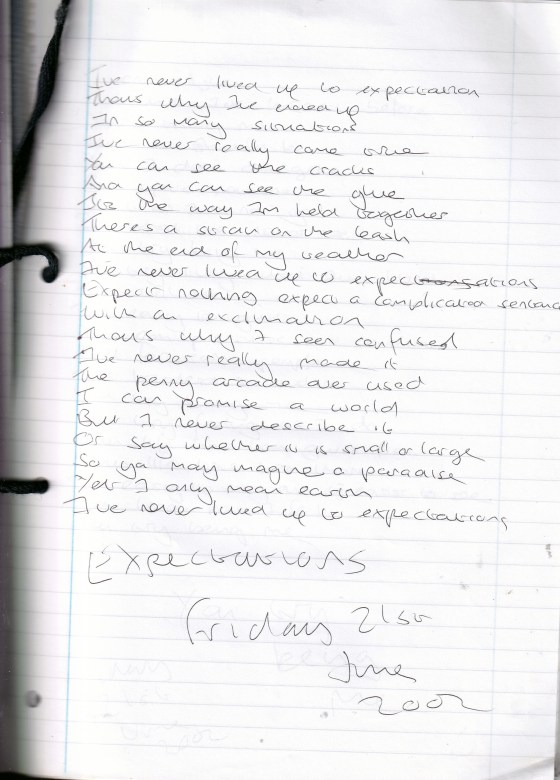 I've never lived up to expectation
Thats why I've ended up
In so many situations
I've never really come true
You can see the cracks
And you can see the glue
Its the way I'm held together
Theres a strain on the leash
At the end of my weather
I've never lived up to expectations
Expect nothing expect a complication sentence
With an exclimation
Thats why I seem confused
I've never really made it
The penny arcade over used
I can promise a world
But I never describe it
Or say whether it is small or large
So ya may imagine a paradise
Yet I only mean earth
I've never lived up to expectations
Expectations
Friday 21st
June
2002